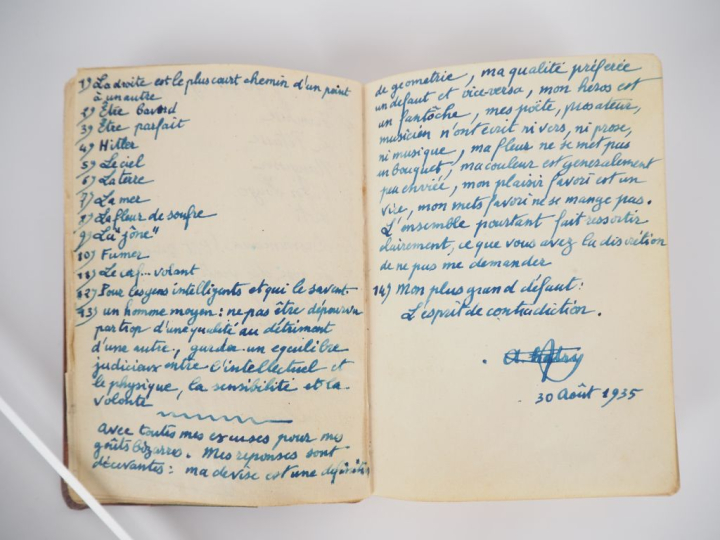 1) La droite est le plus court chemin d'un point
à un autre
2) Être bavard
3) Être parfait
4) Hitler
5) Le ciel
6) La terre
7) La mer
8) La fleur de soufre
9) Le "jône"
10) Fumer
11) Le cerf... volant
12) Pour les gens intelligents et qui le savent.
13) un homme moyen : ne pas être dépourvu
par trop d'une qualité au détriment
d'une autre, garder un équilibre
judicieux entre l'intellectuel et
le physique, la sensibilité et la
volonté
Avec toutes mes excuses pour mes
goûts bizarres. Mes réponses sont
décevantes : ma devise est une définition
de geometrie, ma qualité préferée
un defaut et vice-versa, mon héros est
un fantôche, mes poëte, prosateur,
musicien n'ont écrit ni vers, ni prose,
ni musique, ma fleur ne se met pas
en bouquet, ma couleur est generalement
peu enviée, mon plaisir favori est un
vice, mon mets favori ne se mange pas.
L'ensemble pourtant fait ressortir
clairement, ce que vous avez la discrétion
de ne pas me demander
14) Mon plus grand défaut :
L'esprit de contradiction.
30 Août 1935